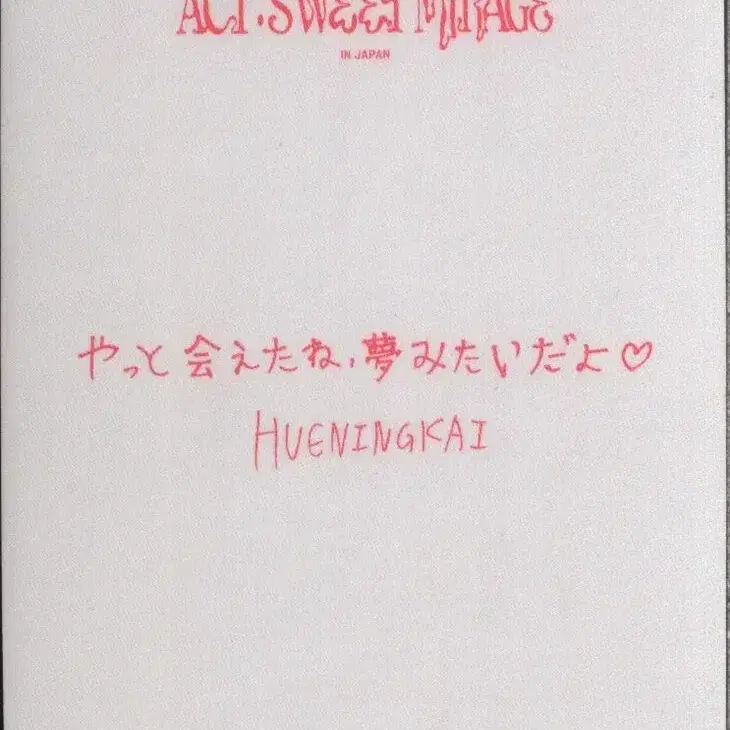 ACT : SWEET MIRAGE
IN JAPAN
やっと会えたね、夢みたいだよ♡
HUENINGKAI